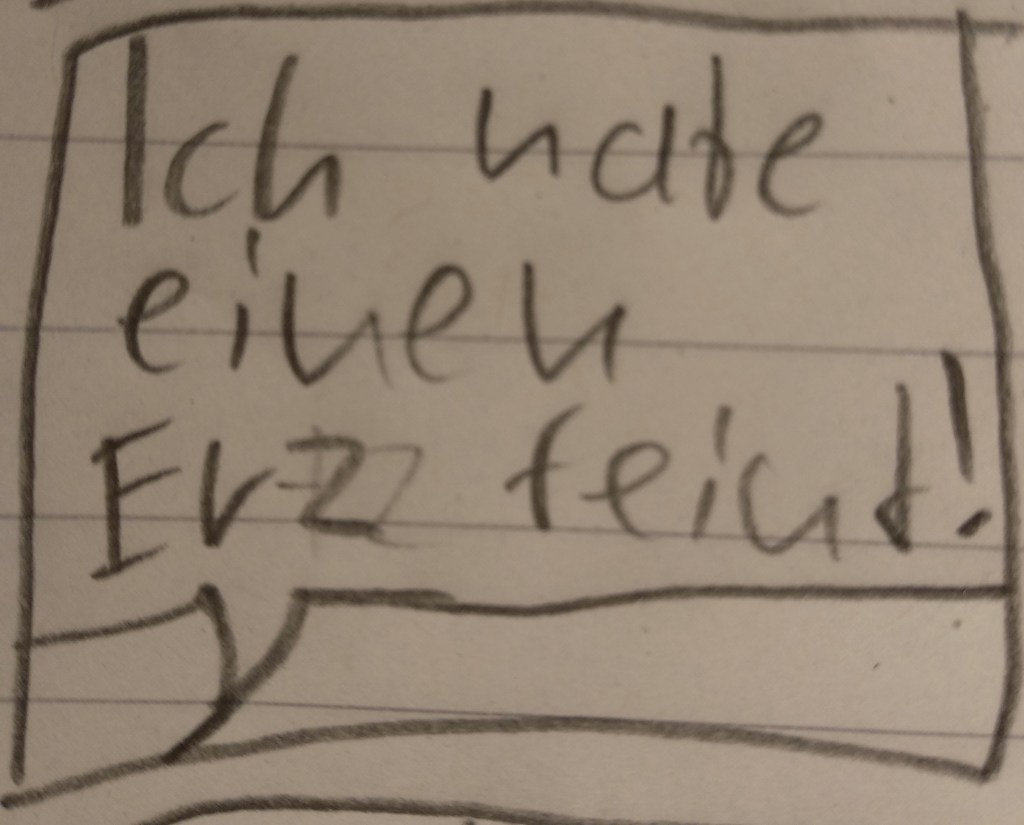 Ich habe
einen
Erz feind!